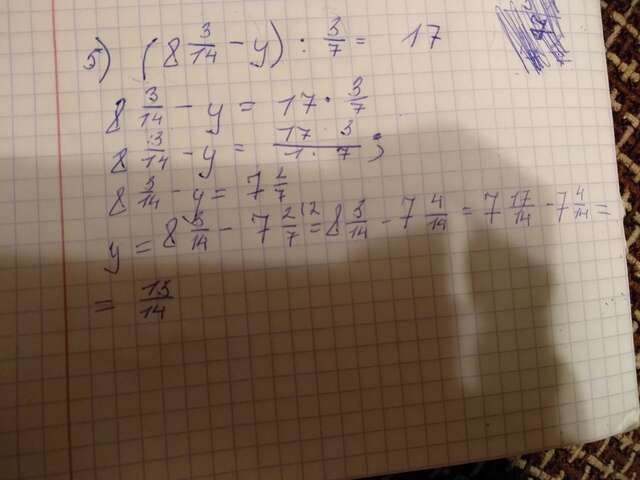 5) (8 3/14 - y) : 3/7 = 17
8 3/14 - y = 17 · 3/7
8 3/14 - y = 17 · 3/1 · 7 ;
8 3/14 - y = 7 2/7
y = 8 3/14 - 7 2/7 |2 = 8 3/14 - 7 4/14 = 7 17/14 - 7 4/14 =
= 13/14